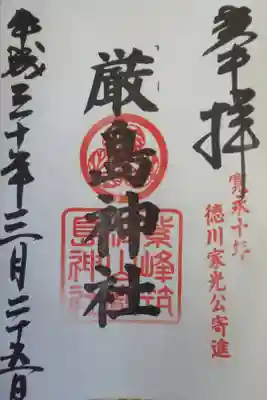 奉拝
寛永十年
徳川家光公寄進
厳島神社
紫峰筑
波山
島神社
平成三十年三月二十五日